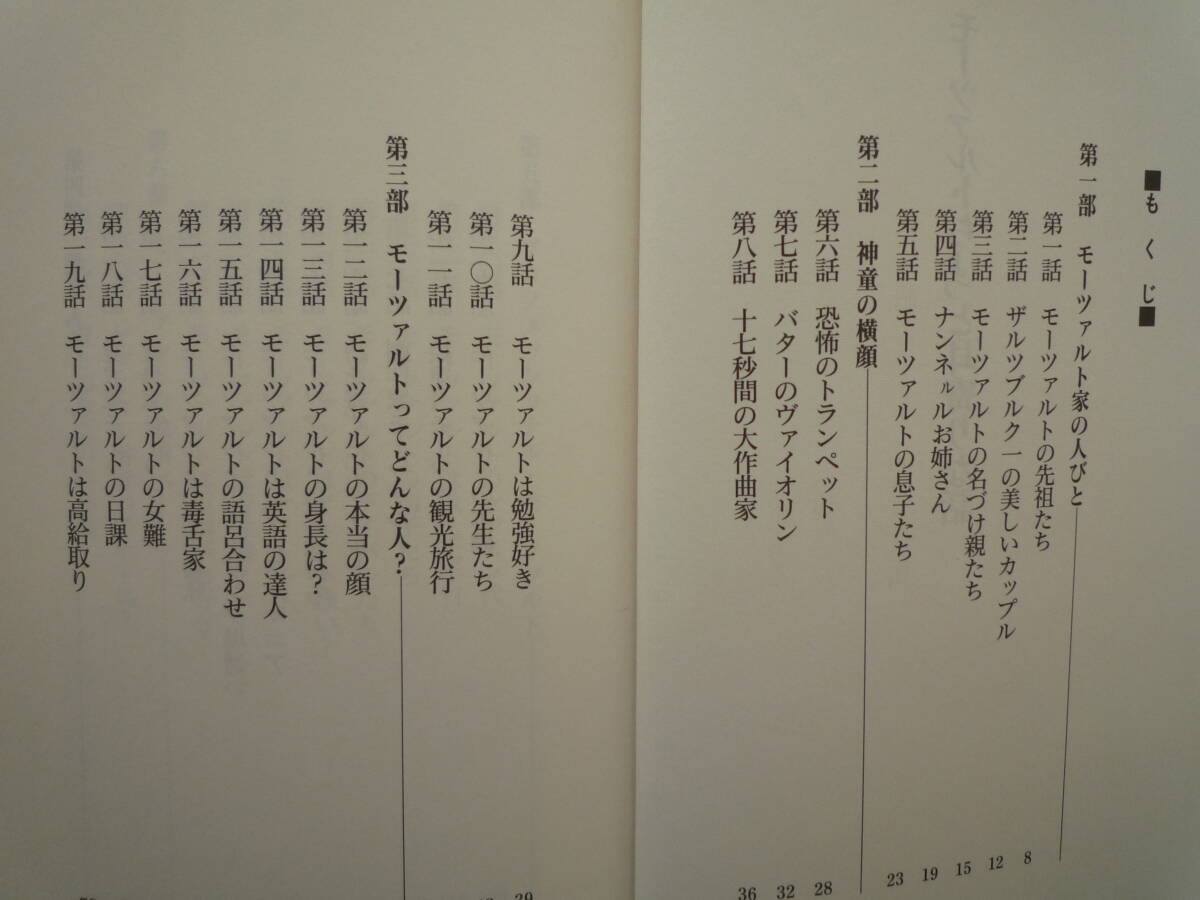 ■もくじ■
第一部 モーツァルト家の人びと
第一話 モーツァルトの先祖たち 8
第二話 ザルツブルク一の美しいカップル 12
第三話 モーツァルトの名づけ親たち 15
第四話 ナンネㇽルお姉さん 19
第五話 モーツァルトの息子たち 23
第二部 神童の横顔
第六話 恐怖のトランペット 28
第七話 バターのヴァイオリン 32
第八話 十七秒間の大作曲家 36
第九話 モーツァルトは勉強好き 39
第一〇話 モーツァルトの先生たち
第一一話 モーツァルトの観光旅行
第三部 モーツァルトってどんな人？
第一二話 モーツァルトの本当の顔
第一三話 モーツァルトの身長は？
第一四話 モーツァルトは英語の達人
第一五話 モーツァルトの語呂合わせ
第一六話 モーツァルトは毒舌家
第一七話 モーツァルトの女難
第一八話 モーツァルトの日課
第一九話 モーツァルトは高給取り